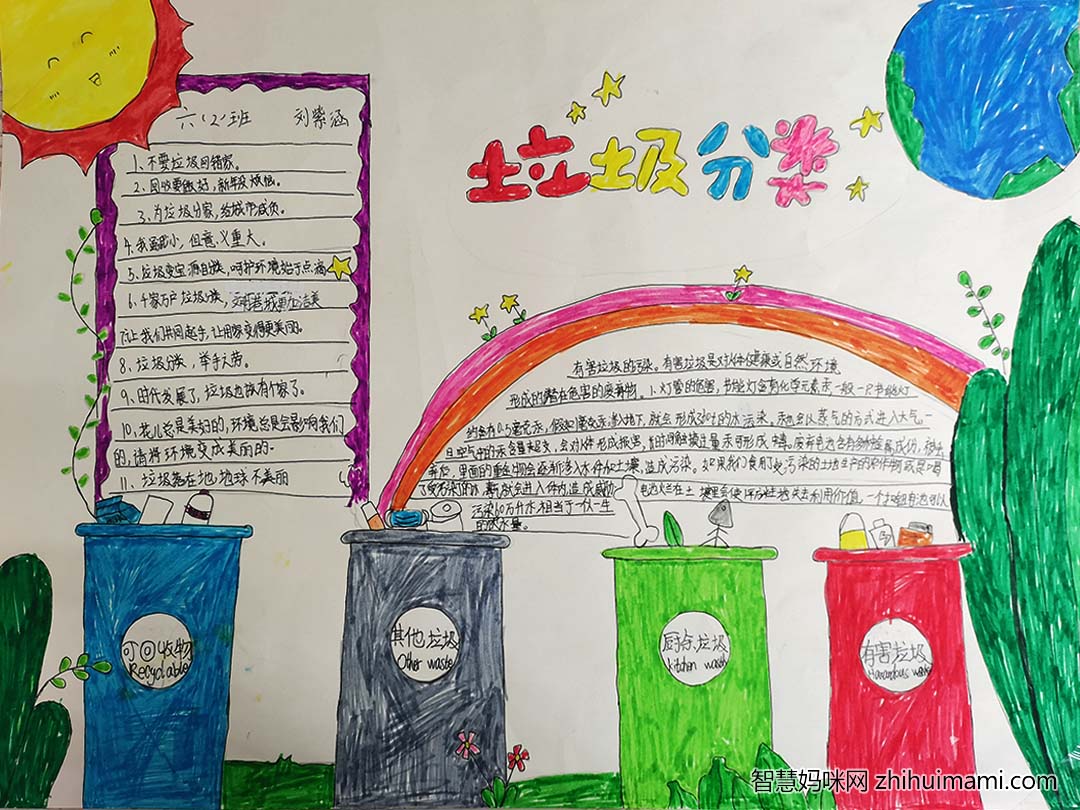 六(2)班 刘紫涵
垃圾分类
1、不要垃圾回错家。
2、回收要做好,新年没烦恼。
3、为垃圾分家,给城市减负。
4、我虽很小,但意义重大。
5、垃圾变宝源自分类,呵护环境始于点滴
6、千家万户垃圾分类,
7、让我们共同起手,让用家变得更美丽。
8、垃圾分类,举手之劳。
9、时代发展了,垃圾也该有个家了。
10、花儿总是美妇的,环境总是会影响我们
的,请将环境变成美丽的。
11、垃圾落在地,地球不美丽
有害垃圾的污染。有害垃圾是对人体健康或自然环境
形成的潜在危害的废弃物。1、灯管的危害,节能灯含有化学元素汞,一般一只节能灯
约含有0.5毫克汞,假如1毫克汞渗入地下,就会形成360吨的水污染,汞也会以蒸气的方式进入大气,一
旦空气中的汞含量超支,会对人体形成损害,长时间触摸过量汞可形成中毒。废弃电池含有多种金属成份,
弃后,里面的重金属会逐渐渗入水体和土壤,造成污染。如果我们食用了受污染的土地生产的农作物或是喝
了受污染的水,毒物就会进入体内,造成威胁
电池烂在土壤里会使1平方米土地失去利用价值,一个扣钮电池可以
污染60万升水,相当于一个人一生
的饮水量。
可回收物
Recyclable
其他垃圾
Other waste
厨余垃圾
kitchen waste
有害垃圾
Hazardous waste
智慧妈咪网 zhihuimami.com